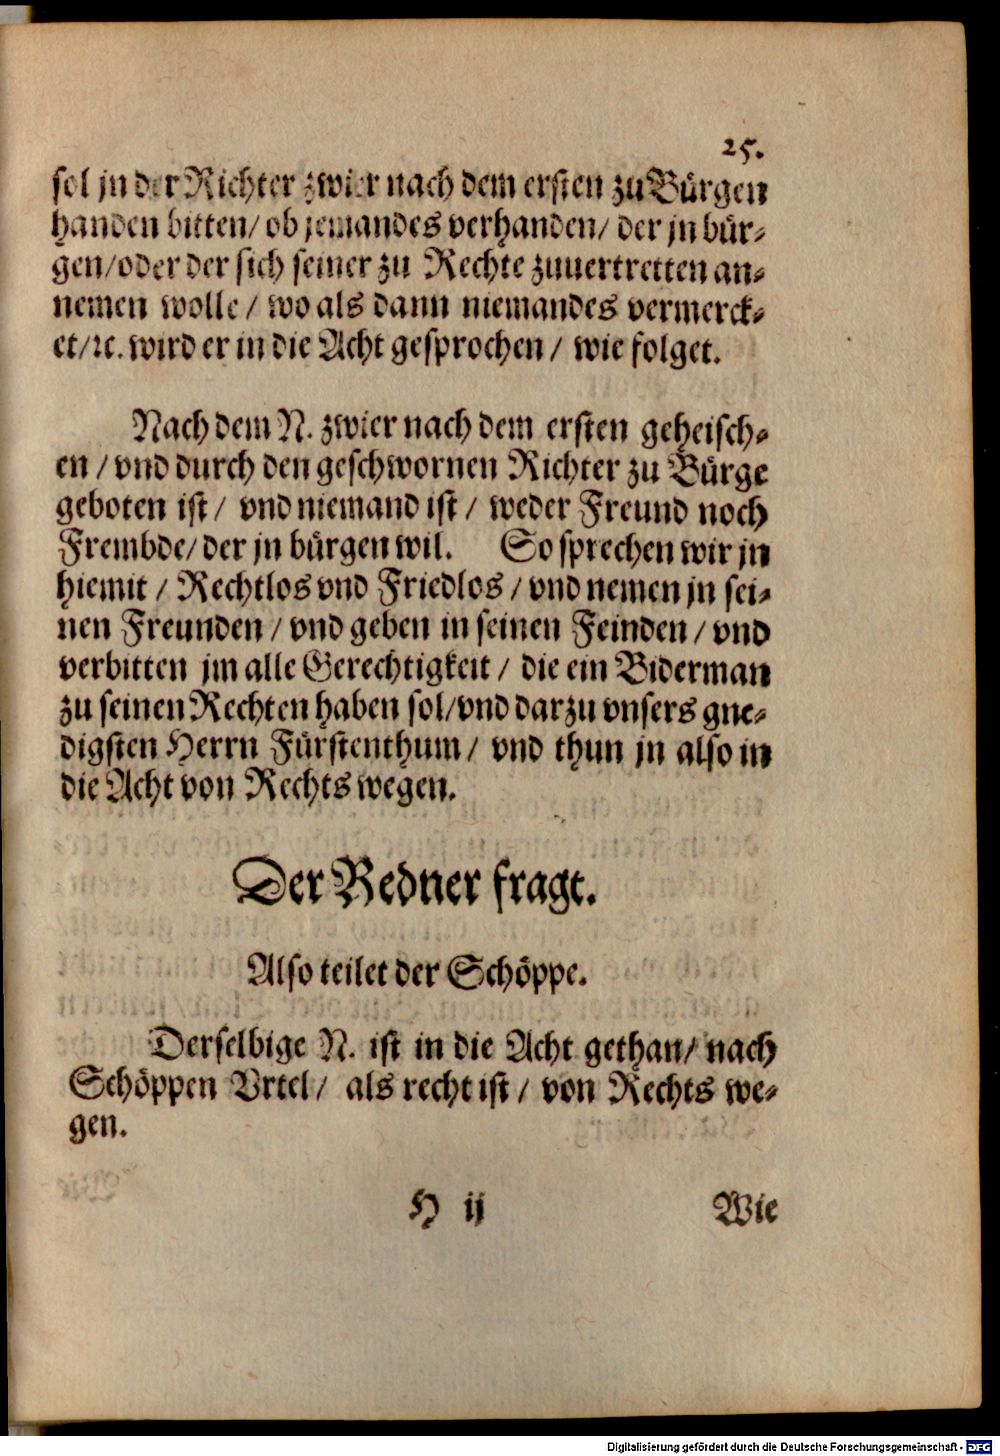 25.
sol jn der Richter zwier nach dem ersten zu Bürgen
handen bitten/ ob jemandes verhanden/ der jn bür-
gen/ oder der sich seiner zu Rechte zuuertretten an-
nemen wolle/ wo als dann niemandes vermerck-
et/ ꝛc. wird er in die Acht gesprochen/ wie folget.
Nach dem N. zwier nach dem ersten geheisch-
en/ vnd durch den geschwornen Richter zu Bürge
geboten ist/ vnd niemand ist/ weder Freund noch
Frembde/ der jn bürgen wil. So sprechen wir jn
hiemit/ Rechtlos vnd Friedlos/ vnd nemen jn sei-
nen Freunden/ vnd geben in seinen Feinden/ vnd
verbitten jm alle Gerechtigkeit/ die ein Biderman
zu seinen Rechten haben sol/ vnd darzu vnsers gne-
digsten Herrn Fürstenthum/ vnd thun jn also in
die Acht von Rechts wegen.
Der Redner fragt.
Also teilet der Schöppe.
Derselbige N. ist in die Acht gethan/ nach
Schöppen Vrtel/ als recht ist/ von Rechts we-
gen.
H ij Wie
Digitalisierung gefördert durch die Deutsche Forschungsgemeinschaft - DFG